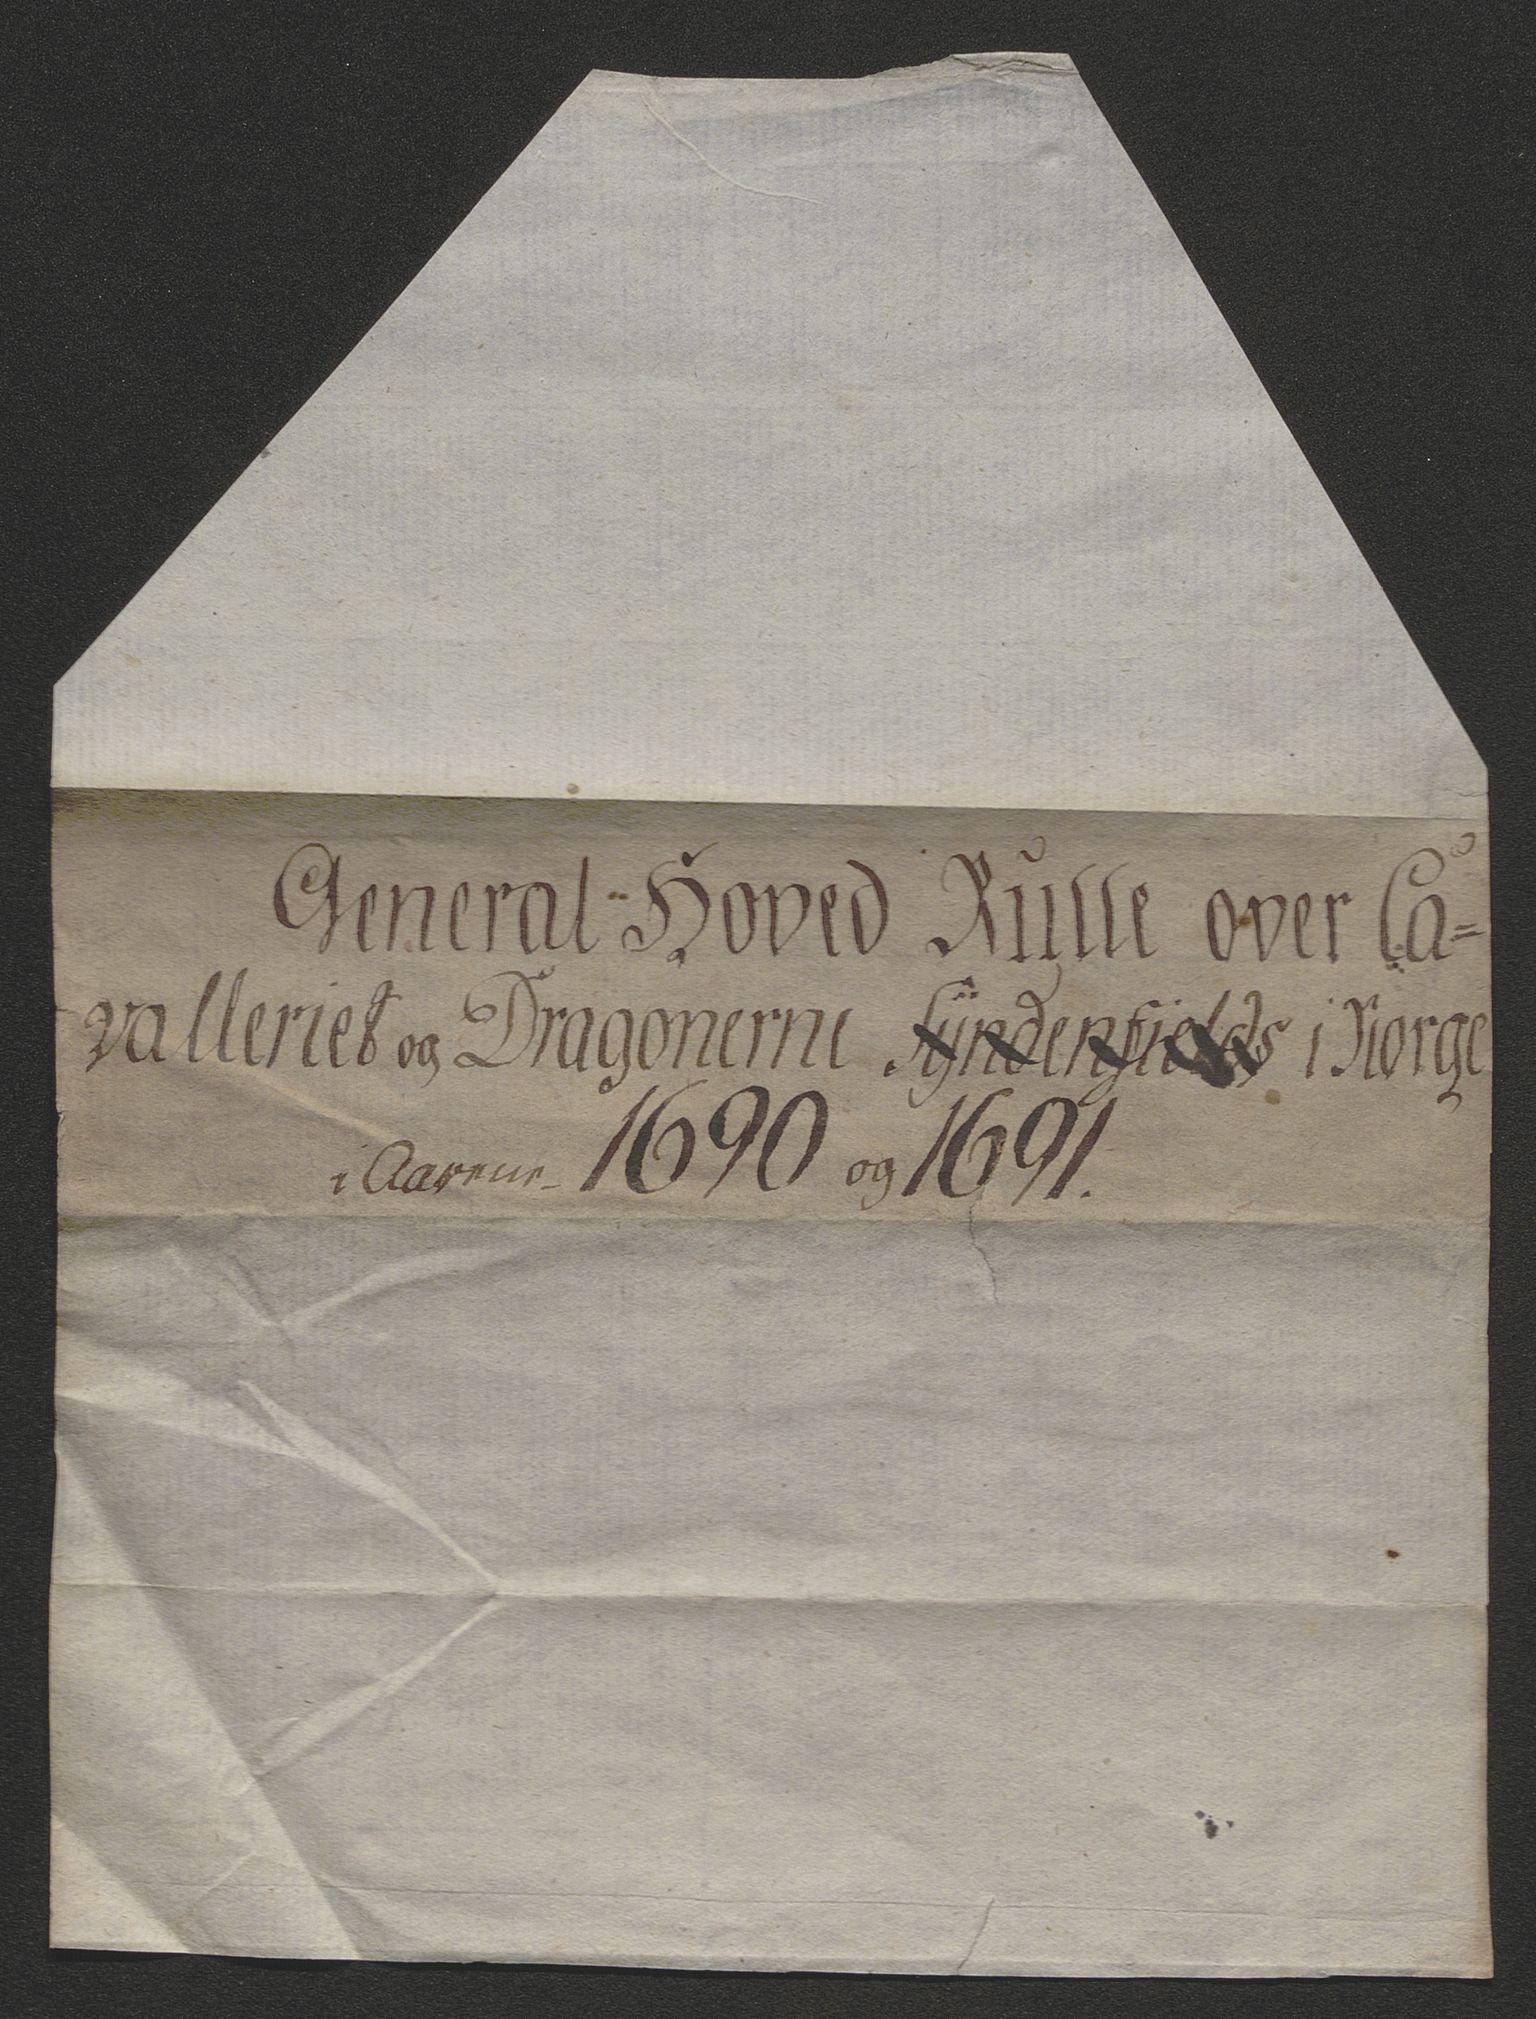 General-Hoved Rulle over Ca=
valleriet og Dragonerne Syndenfields i Norge
i Aarene 1690 og 1691.